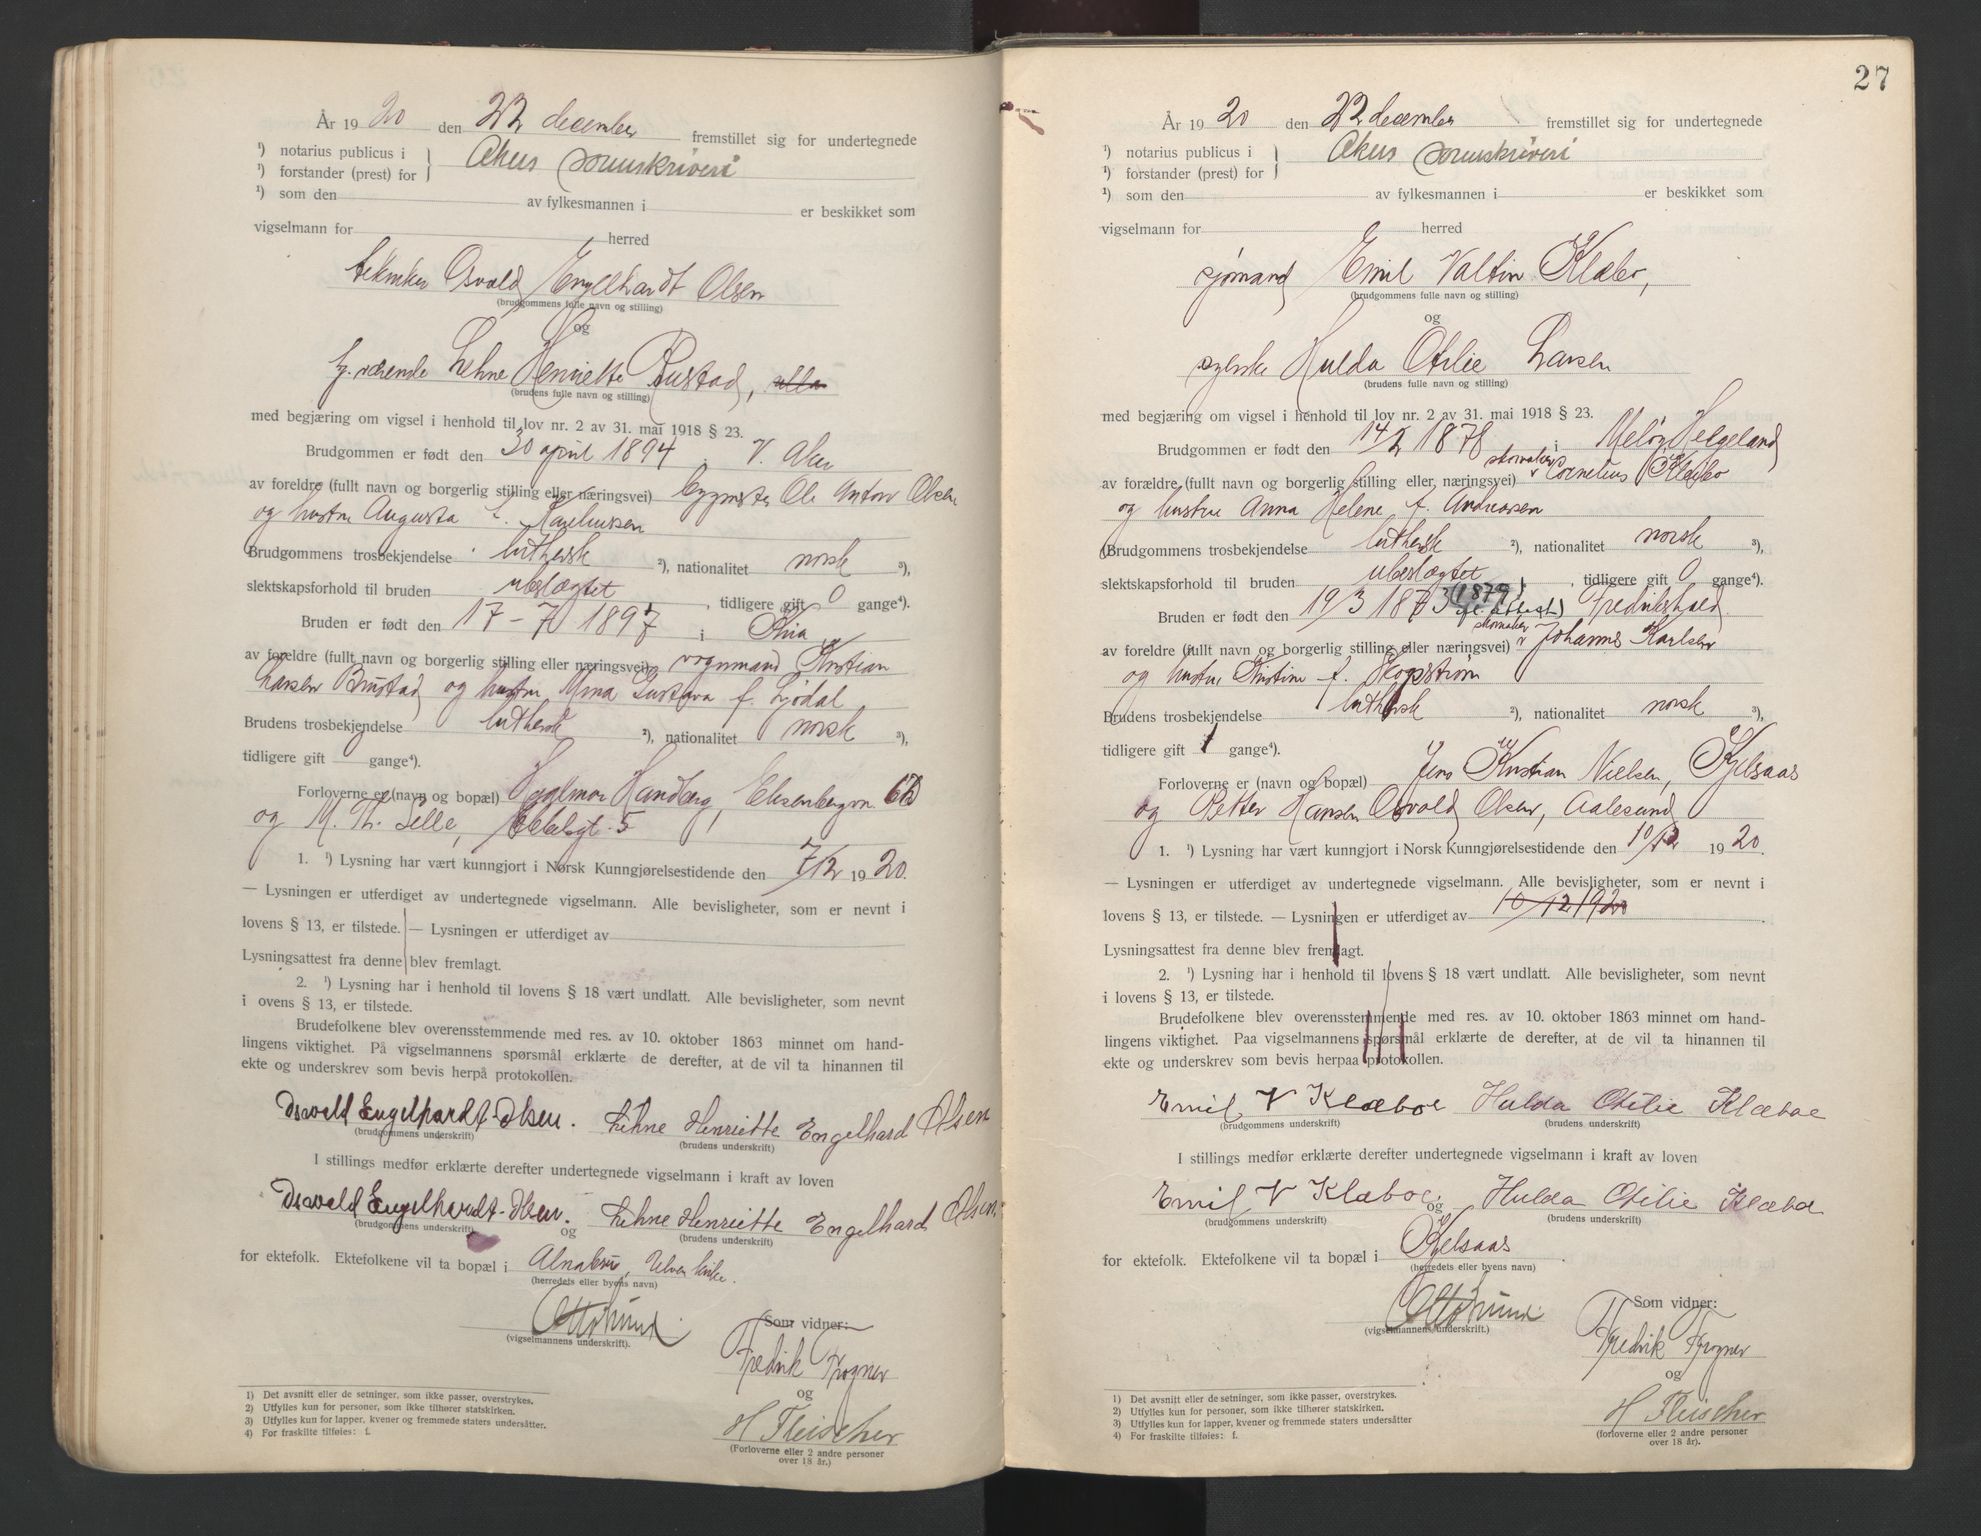 År 1920 den 22 december fremstillet sig for undertegnede
¹) notarius publicus i } Akers sorenskriveri
¹) forstander (prest) for
¹) som den av fylkesmannen i er beskikket som
vigselmann for herred
tekniker Osvald Engelhardt Olsen
(brudgommens fulle navn og stilling)
og
Lehne Henriette Brustad,
(brudens fulle navn og stilling)
med begjæring om vigsel i henhold til lov nr. 2 av 31. mai 1918 § 23.
Brudgommen er født den 30 april 1894 i V. Aker
av foreldre (fullt navn og borgerlig stilling eller næringsvei) bygmester Ole Anton Olsen
og hustru Augusta f. Karlsen
Brudgommens trosbekjendelse luthersk ²), nationalitet norsk ³),
slektskapsforhold til bruden ubeslægtet, tidligere gift 0 gange⁴).
Bruden er født den 17-7 1897 i Kria
av foreldre (fullt navn og borgerlig stilling eller næringsvei) vognmand Kristian
Larsen Brustad og hustru Mina Gustava f. Lødal
Brudens trosbekjendelse luthersk ²), nationalitet norsk ³),
tidligere gift 0 gange⁴).
Forloverne er (navn og bopæl) Hjalmar Handberg, Eilersenbergvn. 6
og M. Th. Selle, 5
1. ¹) Lysning har vært kunngjort i Norsk Kunngjørelsestidende den 7/12 1920.
— Lysningen er utferdiget av undertegnede vigselmann. Alle bevisligheter, som er nevnt i
lovens § 13, er tilstede. — Lysningen er utferdiget av
Lysningsattest fra denne blev fremlagt.
2. ¹) Lysning har i henhold til lovens § 18 vært undlatt. Alle bevisligheter, som nevnt
i ovens § 13, er tilstede.
Brudefolkene blev overensstemmende med res. av 10. oktober 1863 minnet om hand-
lingens viktighet. På vigselmannens spørsmål erklærte de derefter, at de vil ta hinannen til
ekte og underskrev som bevis herpå protokollen.
Osvald Engelhardt-Olsen. Lehne Henriette Engelhard Olsen
(brudgommens underskrift) (brudens underskrift)
I stillings medfør erklærte derefter undertegnede vigselmann i kraft av loven
Osvald Engelhardt-Olsen. og Lehne Henriette Engelhard Olsen
(brudgommens underskrift) (brudens underskrift)
for ektefolk. Ektefolkene vil ta bopæl i Alnabru, Ulven
(herredets eller byens navn)
(vigselmannens underskrift).
Som vidner:
Fredrik Frogner
og
H Fleischer
(Forloverne eller 2 andre personer
over 18 år.)
1) Det avsnitt eller de setninger, som ikke passer, overstrykes.
2) Utfylles kun for personer, som ikke tilhører statskirken.
3) Utfylles kun for lapper, kvener og fremmede staters undersåtter.
4) For fraskilte tilføies: f.
27
År 1920 den 22 december fremstillet sig for undertegnede
¹) notarius publicus i } Akers sorenskriveri
¹) forstander (prest) for
¹) som den av fylkesmannen i er beskikket som
vigselmann for herred
sjømand Emil Valtin Klæbo,
(brudgommens fulle navn og stilling)
og
syerske Hulda Otilie Larsen
(brudens fulle navn og stilling)
med begjæring om vigsel i henhold til lov nr. 2 av 31. mai 1918 § 23.
Brudgommen er født den 14/2 1878 i Meløy Helgeland
av forældre (fullt navn og borgerlig stilling eller, næringsvei) skomaker Cornelius Klæbo
og hustru Anna Helene f. Andreassen
(Brudgommens trosbekjendelse luthersk ²), nationalitet norsk ³),
slektskapsforhold til bruden ubeslægtet, tidligere gift 0 gange⁴).
Bruden er født den 19/3 1873 (1879 attest) i Fredrikshald
av foreldre (fullt navn og borgerlig stilling eller næringsvei) skomaker Johannes Karlsen
og hustru Kristine f. Skogstrøm
Brudens trosbekjendelse luthersk ²), nationalitet norsk ³),
tidligere gift 1 gange⁴).
Forloverne er (navn og bopæl) Jens Kristian Nielsen, Kjelsaas
og Petter Hansen Osvald Olsen, Aalesund
1. ¹) Lysning har vært kunngjort i Norsk Kunngjørelsestidende den 10/12 1920.
— Lysningen er utferdiget av undertegnede vigselmann. Alle bevisligheter, som er nevnt i
lovens § 13, er tilstede. — Lysningen er utferdiget av 10/12 1920.
Lysningsattest fra denne blev fremlagt.
2. ¹) Lysning har i henhold til lovens § 18 vært undlatt. Alle bevisligheter, som nevnt
i lovens § 13, er tilstede.
Brudefolkene blev overensstemmende med res. av 10. oktober 1863 minnet om hand-
lingens viktighet. Paa vigselmannens spørsmål erklærte de derefter, at de vil ta hinannen til
ekte og underskrev som bevis herpaa protokollen.
Emil V Klæboe Hulda Otilie Klæboe
(brudgommens underskrift) (brudens underskrift)
I stillings medfør erklærte derefter undertegnede vigselmann i kraft av loven
Emil V Klæboe. og Hulda Otilie Klæboe
(brudgommens underskrift) (brudens underskrift)
for ektefolk. Ektefolkene vil ta bopæl i Kjelsaas.
(herredets eller byens navn)
(vigselmannens underskrift.)
Som vidner:
Fredrik Frogner
og
H Fleischer
(forloverne eller 2 andre personer
over 18 år).
1) Det avsnitt eller de setninger, som ikke passer, overstrykes.
2) Utfylles kun for personer, som ikke tilhører statskirken.
3) Utfylles kun for lapper, kvener og fremmede staters undersåtter
4) For fraskilte tilføies: f.